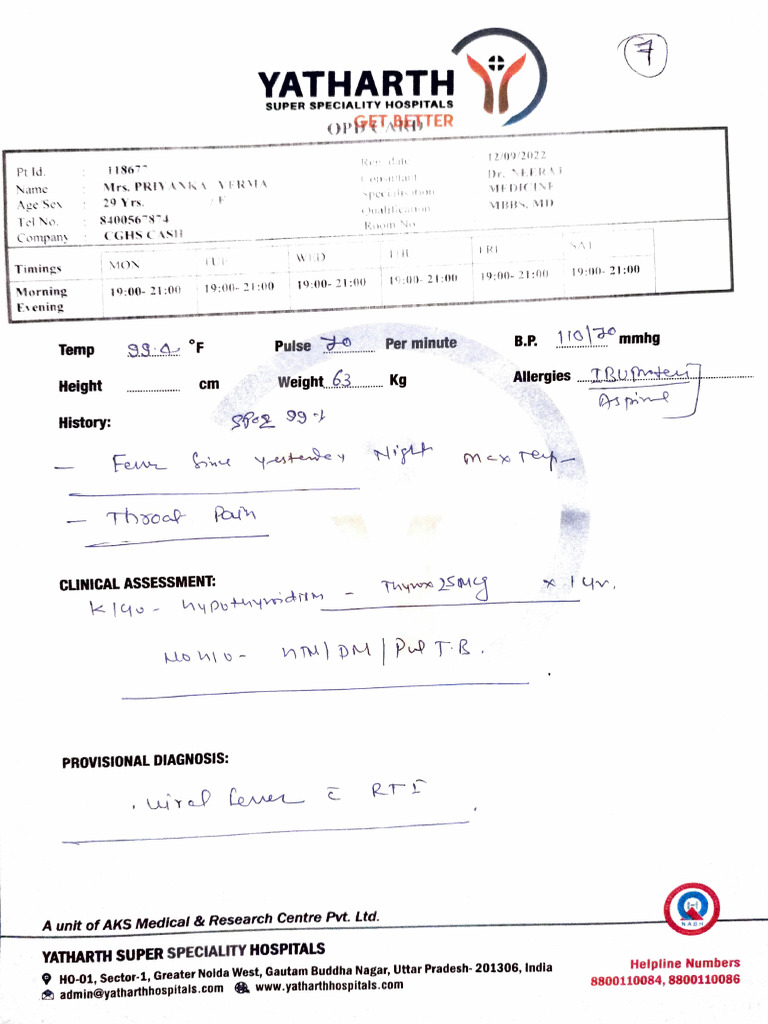 7
YATHARTH
SUPER SPECIALITY HOSPITALS
GET BETTER
OPD CARD
Pt Id. : 118677 Reg. date 12/09/2022
Name : Mrs. PRIYANKA VERMA Consultant Dr. NEERAJ
Age/Sex : 29 Yrs. / F Specialisation MEDICINE
Tel No. : 8400567874 Qualification MBBS, MD
Company : CGHS CASH Room No
Timings MON TUE WED THU FRI SAT
Morning 19:00- 21:00 19:00- 21:00 19:00- 21:00 19:00- 21:00 19:00- 21:00 19:00- 21:00
Evening
Temp 99.0 °F Pulse 70 Per minute B.P. 110/70 mmhg
Height cm Weight 63 Kg Allergies IBUProfen
Aspirine
History: SPO2 99-1
- Fever Since yesterday Night Max Temp-
- Throat Pain
CLINICAL ASSESSMENT:
K/c/o - hypothyroidism - Thyrox 25 Mcg x 1 yr.
No h/o - HTN/DM/Pul T.B.
PROVISIONAL DIAGNOSIS:
. viral fever c̄ RTI
A unit of AKS Medical & Research Centre Pvt. Ltd.
NABH
YATHARTH SUPER SPECIALITY HOSPITALS
HO-01, Sector-1, Greater Noida West, Gautam Buddha Nagar, Uttar Pradesh- 201306, India
admin@yatharthhospitals.com www.yatharthhospitals.com
Helpline Numbers
8800110084, 8800110086